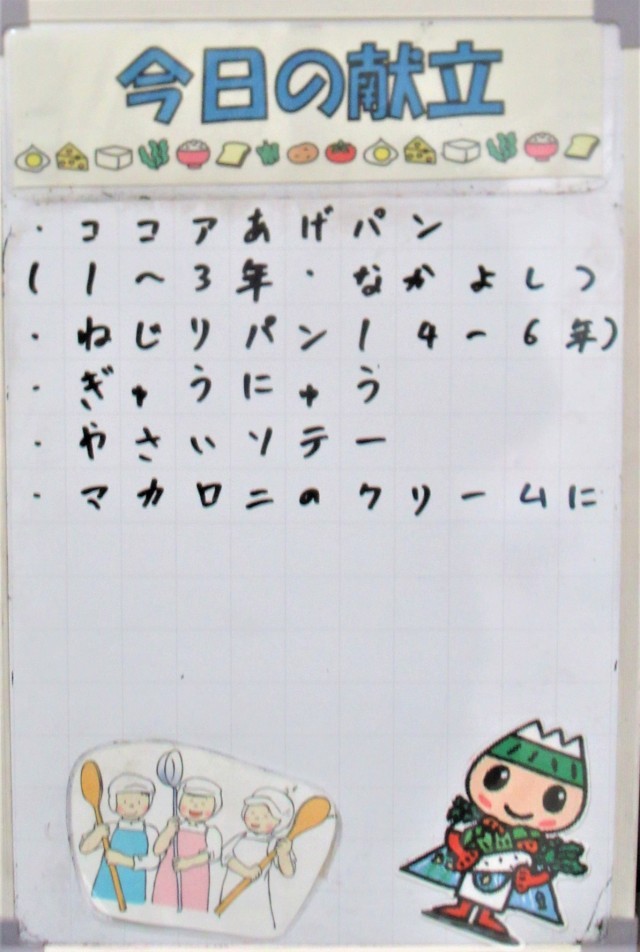 今日の献立
・ココアあげパン
(1〜3年・なかよしつ
・ねじりパン(4〜6年)
・ぎゅうにゅう
・やさいソテー
・マカロニのクリームに